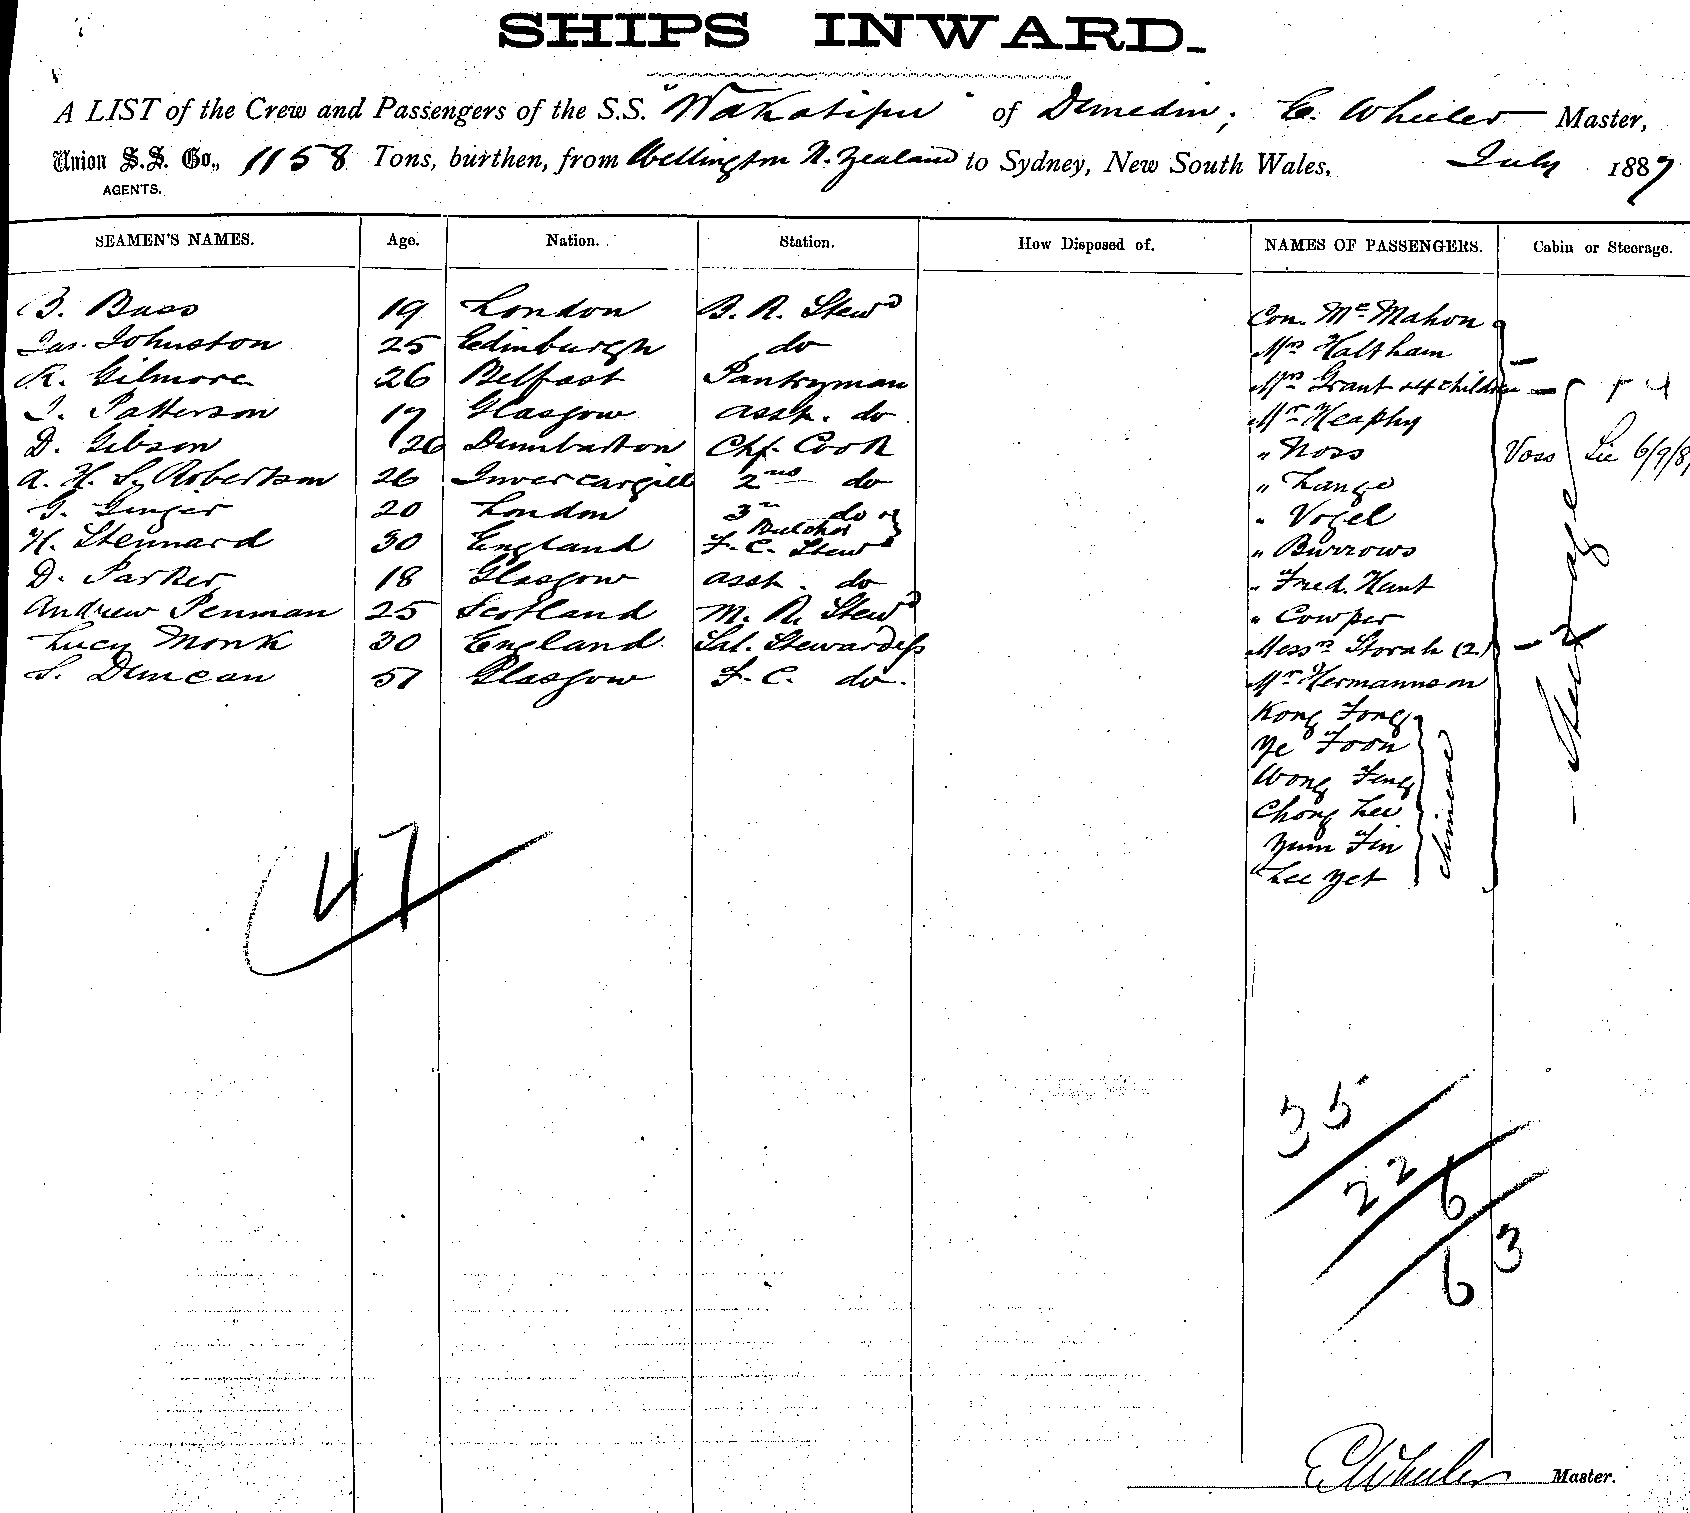 SHIPS INWARD.
A LIST of the Crew and Passengers of the S.S. "Wakatipu" of Dunedin; C. Wheeler Master,
Union S.S. Co., 1158 Tons, burthen, from Wellington N. Zealand to Sydney, New South Wales, July 1887
AGENTS.
SEAMEN'S NAMES. Age. Nation. Station. How Disposed of. NAMES OF PASSENGERS. Cabin or Steerage.
B. Bass 19 London B. R. Stewd
Jas. Johnston 25 Edinburgh do
R. Gilmore 26 Belfast Pantryman
J. Patterson 17 Glasgow asst. do
D. Gibson 26 Dumbarton Chf. Cook
A. H. S. Robertson 26 Invercargill 2nd do
G. Ginger 20 London 3rd do &
Butcher
H. Stennard 30 England F. C. Stewd
D. Parker 18 Glasgow asst. do
Andrew Penman 25 Scotland M. R. Stewd
Lucy Monk 30 England Sal. Stewardess
S. Duncan 51 Glasgow F. C. do.
Con. McMahon
Mrs Haltham
Mrs Grant & 4 children
Mr Heaphy
" Noss Voss 6/9/8
" Lange
" Vogel
" Burrows
" Fred. Hunt
" Cowper
Messrs Storah (2)
Mr Hermannson
Kong Fong
Ye Foon
Wong Fung
Chong Lee
Yum Fin
Lee Yet
Chinese
Steerage
47
35
22
6
63
C Wheeler Master.